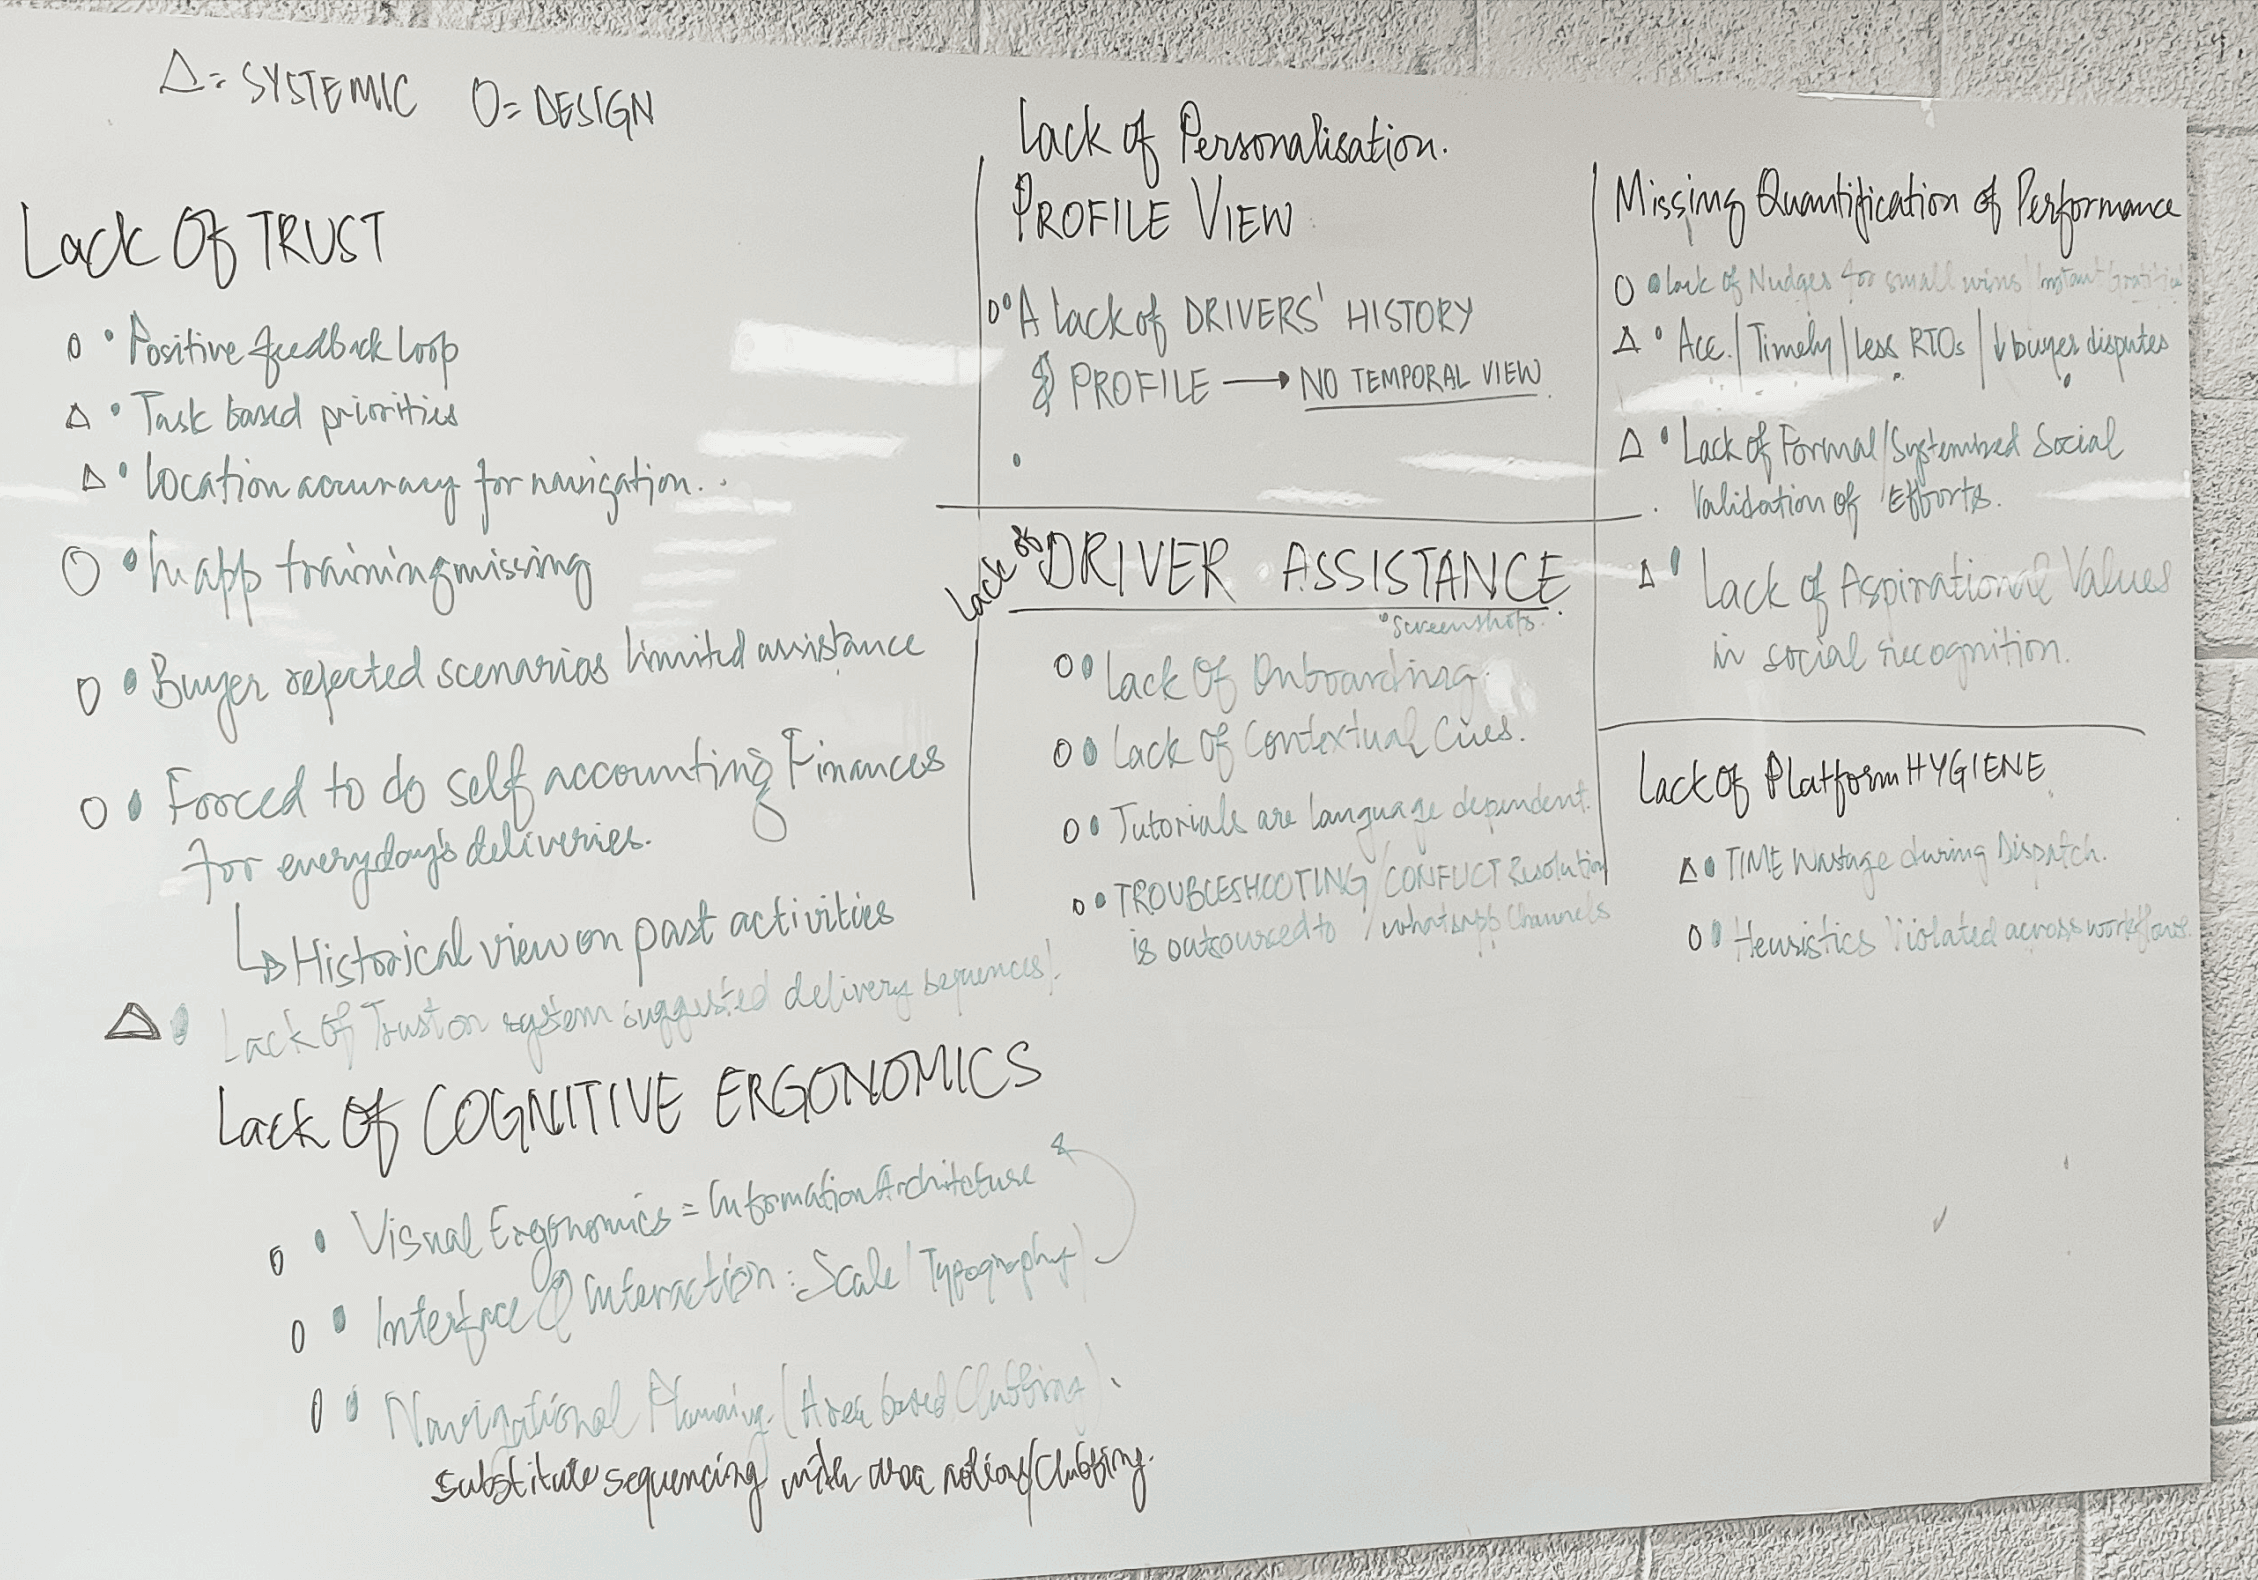 △ = SYSTEMIC O = DESIGN
Lack Of TRUST
O • Positive feedback loop
△ • Task based priorities
△ • Location accuracy for navigation..
O • In app training missing
O • Buyer rejected scenarios limited assistance
O • Forced to do self accounting & Finances
for everyday's deliveries.
↳ Historical view on past activities
△ • Lack Of Trust on system suggested delivery sequences!
Lack Of COGNITIVE ERGONOMICS
O • Visual Ergonomics = Information Architecture
O • Interface & Interaction : Scale / Typography
O • Navigational Planning (Area based Clubbing).
substitute sequencing with area notions/Clubbing.
Lack of Personalisation.
PROFILE VIEW
O • A lack of DRIVERS' HISTORY
& PROFILE → NO TEMPORAL VIEW.
•
Lack of DRIVER ASSISTANCE
• Screenshots.
O • Lack Of Onboarding.
O • Lack Of Contextual Cues.
O • Tutorials are language dependent.
O • TROUBLESHOOTING / CONFLICT Resolution
is outsourced to / whatsapp Channels
Missing Quantification of Performance
O • Lack of Nudges for small wins / Instant
△ • Acc. / Timely / Less RTOs / ↓ buyer disputes
△ • Lack Of Formal / Systemized Social
Validation of Efforts.
△ • Lack of Aspirational Values
in social recognition.
Lack Of Platform HYGIENE
△ • TIME Wastage during Dispatch.
O • Heuristics Violated across workflows.